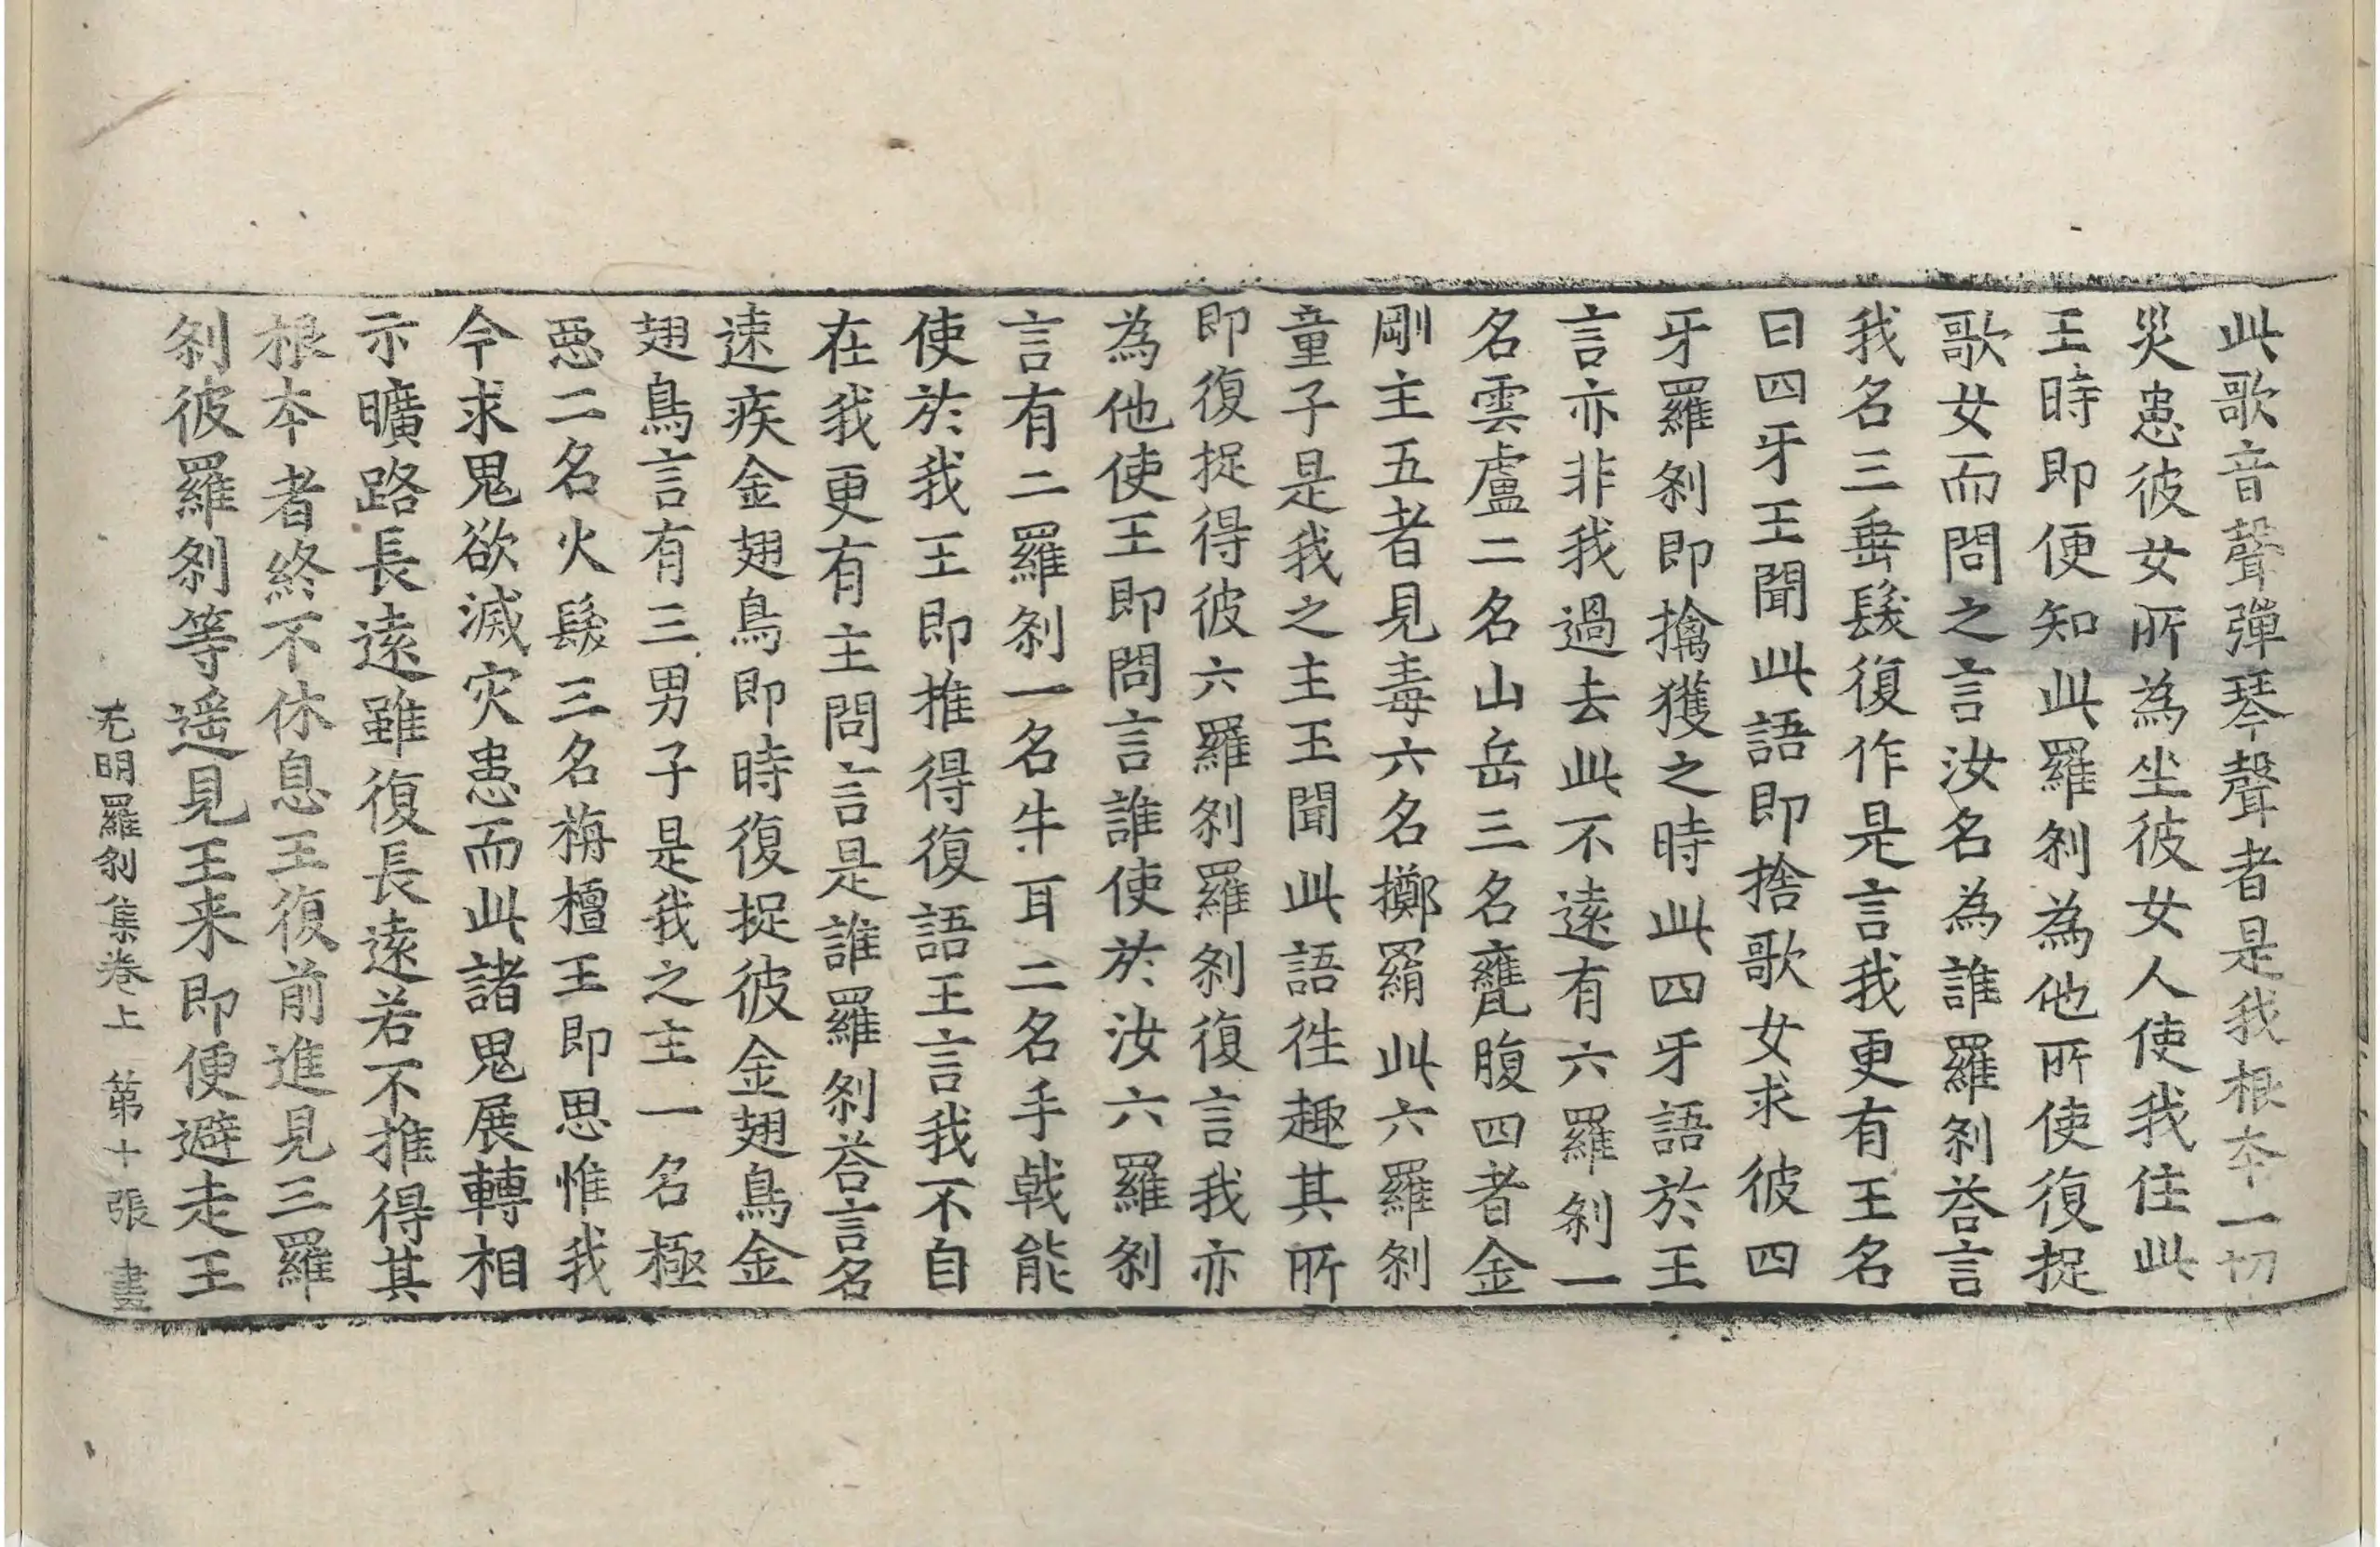 此歌音聲彈琴聲者是我根夲一切
災患彼女所為坐彼女人使我住此
王時即便知此羅刹為他所使復捉
歌女而問之言汝名為誰羅刹荅言
我名三垂髮復作是言我更有王名
曰四牙王聞此語即捨歌女求彼四
牙羅刹即擒獲之時此四牙語於王
言亦非我過去此不遠有六羅刹一
名雲盧二名山岳三名甕腹四者金
剛主五者見毒六名擲羂此六羅刹
童子是我之主王聞此語徃趣其所
即復捉得彼六羅刹羅刹復言我亦
為他使王即問言誰使於汝六羅刹
言有二羅刹一名牛耳二名手戟能
使於我王即推得復語王言我不自
在我更有主問言是誰羅刹荅言名
速疾金翅鳥即時復捉彼金翅鳥金
翅鳥言有三男子是我之主一名極
惡二名火髮三名栴檀王即思惟我
今求鬼欲滅灾患而此諸鬼展轉相
示曠路長遠雖復長遠若不推得其
根夲者終不休息王復前進見三羅
刹彼羅刹等遥見王来即便避走王
无明羅刹集卷上 第十張 畫